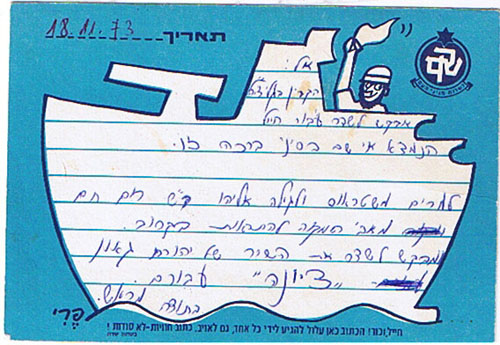 תאריך 18.11.73
שקם
אל:
הקרין בגלי צה"ל
מבקש לשדר עבור חייל
הנמצא אי שם בסיני ברכה זו.
לחרים משטראוס ולגילה אליהו ד"ש חם חם
מאבי המקוה להתראות בקרוב.
ומבקש לשדר את השיר של יהורם גאון
"ציונה" עבורם.
בתודה מראש.
פרי
חייל, זכור! הכתוב כאן עלול להגיע לידי כל אחד, גם לאויב. כתוב חוויות-לא סודות!